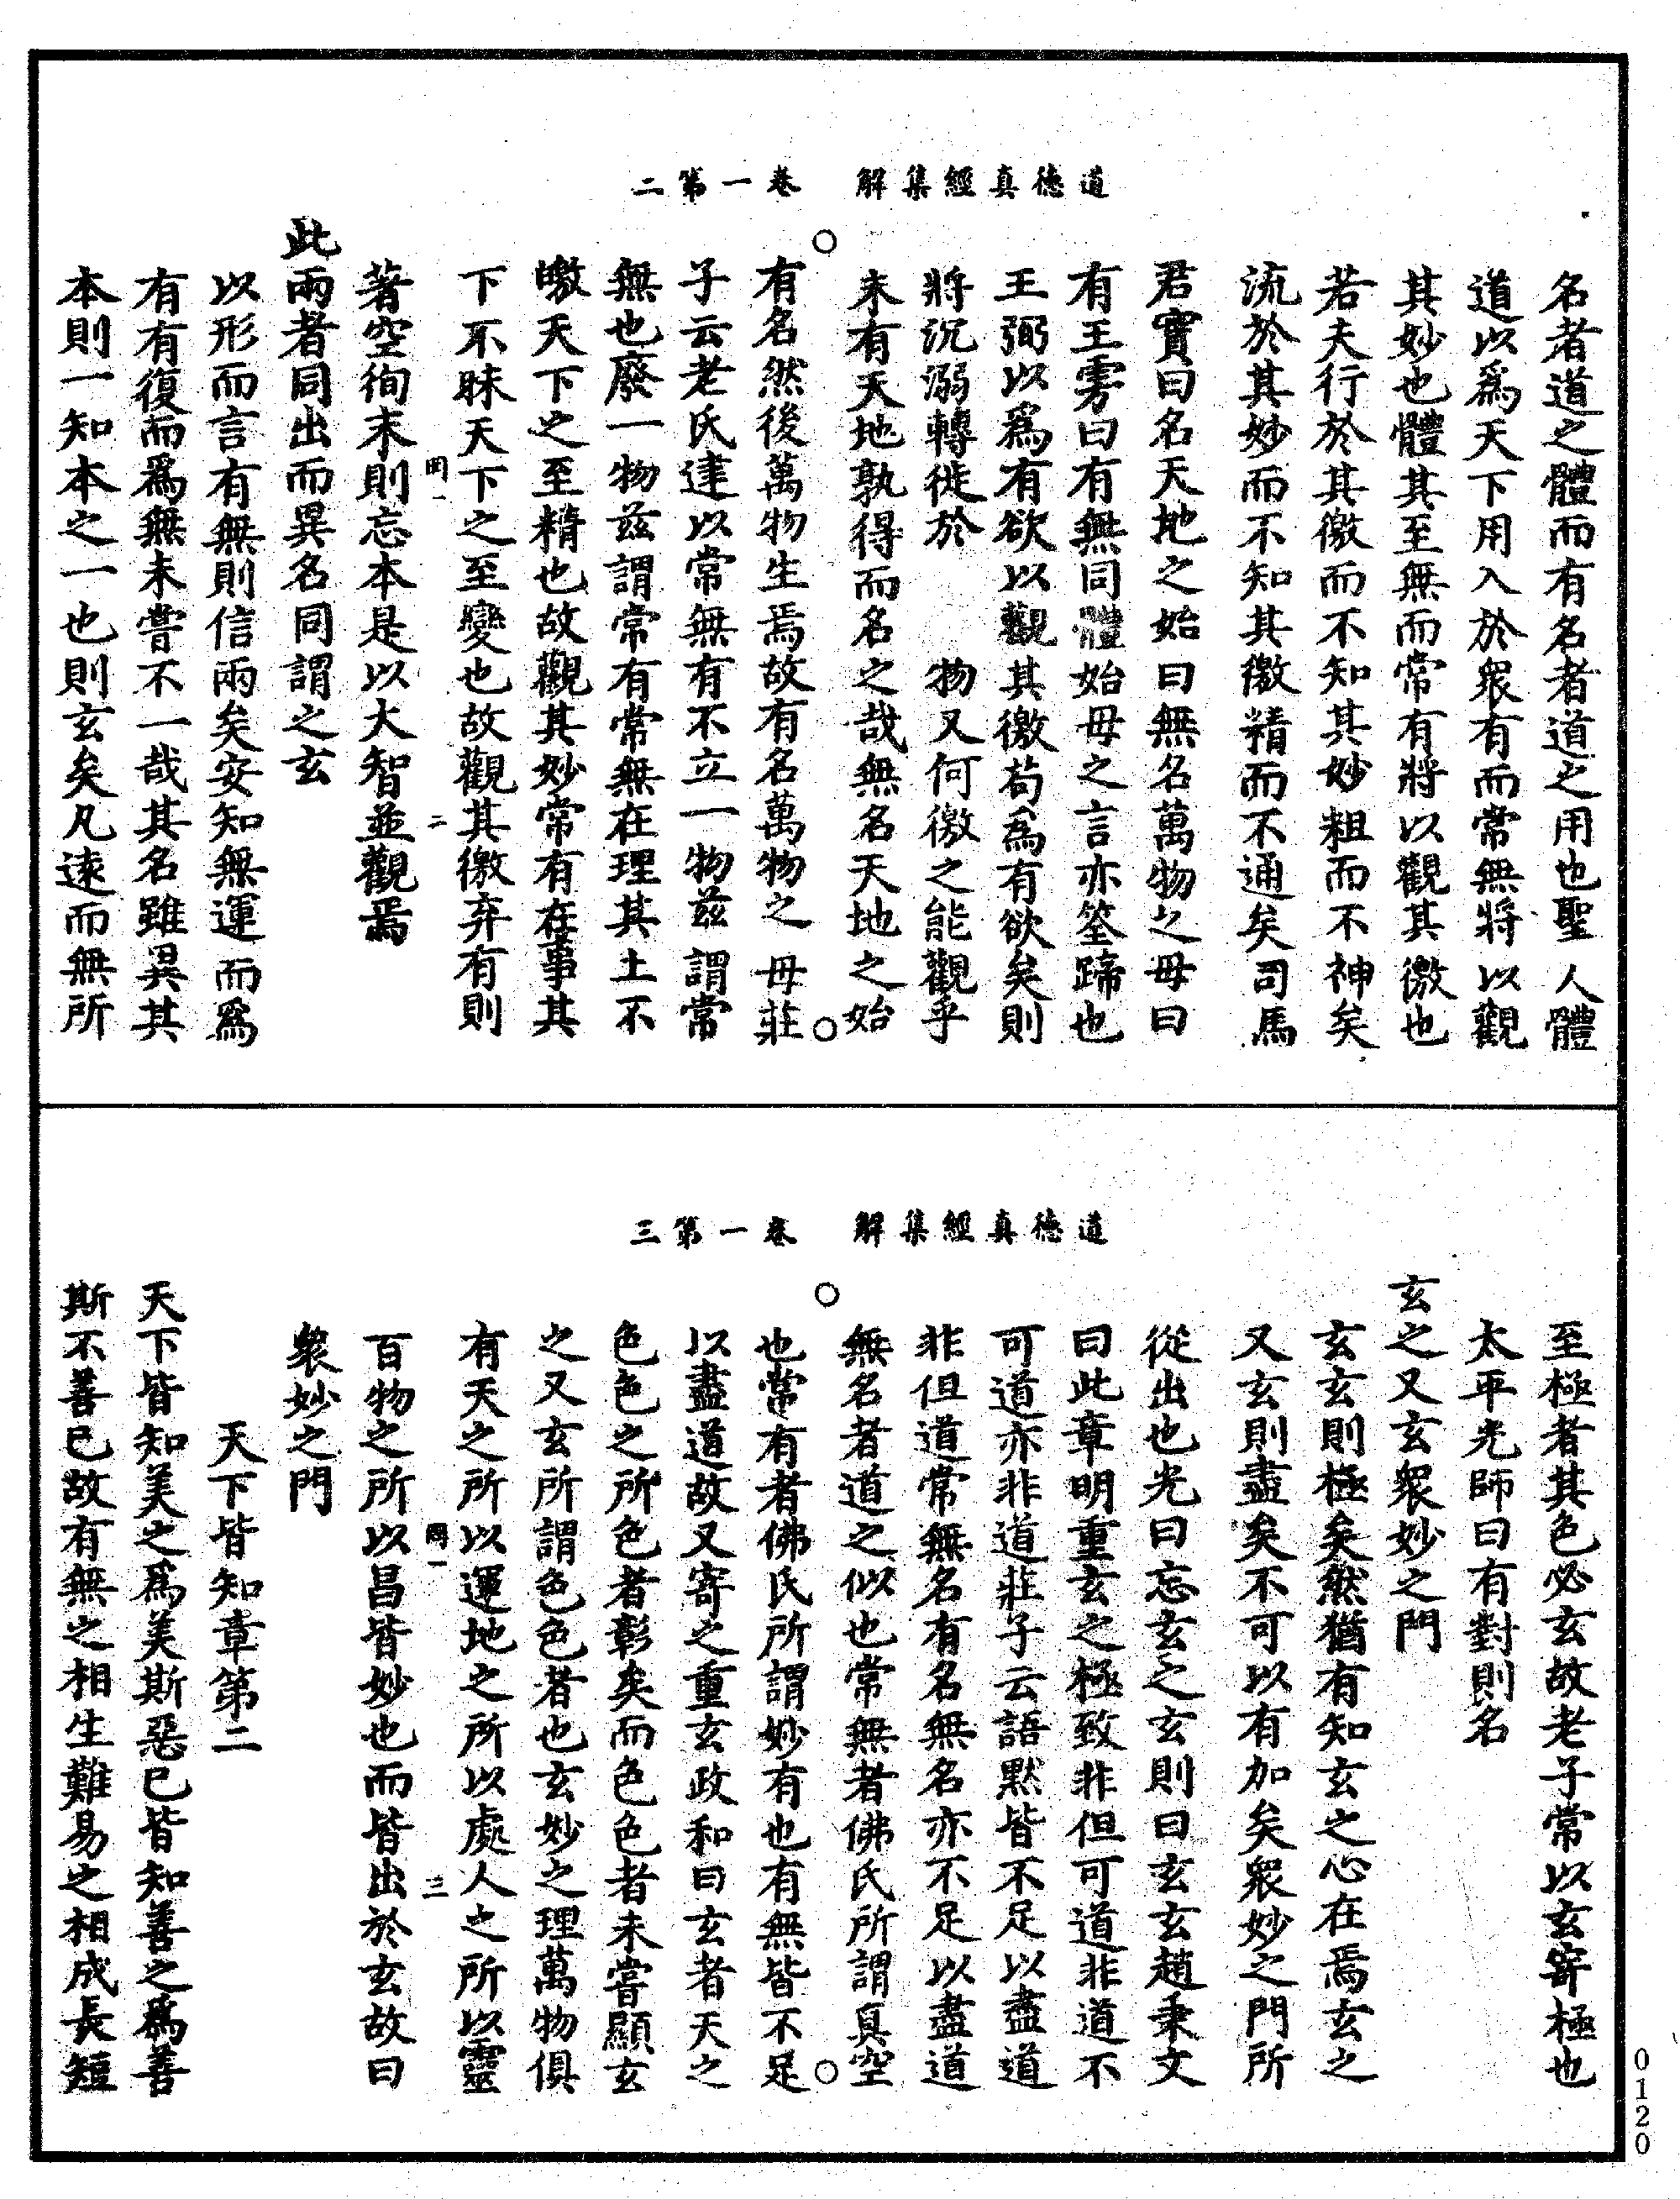 道德真經集解 卷一第二
名者道之體而有名者道之用也聖人體
道以爲天下用入於衆有而常無將以觀
其妙也體其至無而常有將以觀其徼也
若夫行於其徼而不知其妙粗而不神矣
流於其妙而不知其徼精而不通矣司馬
君實曰名天地之始曰無名萬物之母曰
有王雱曰有無同體始母之言亦筌蹄也
王弼以爲有欲以觀其徼苟爲有欲矣則
將沉溺轉徙於 物又何徼之能觀乎
未有天地孰得而名之哉無名天地之始
有名然後萬物生焉故有名萬物之母莊
子云老氏建以常無有不立一物茲謂常
無也廢一物茲謂常有常無在理其上不
皦天下之至精也故觀其妙常有在事其
下不昧天下之至變也故觀其徼弃有則
罔一 二
著空徇末則忘本是以大智並觀焉
此兩者同出而異名同謂之玄
以形而言有無則信兩矣安知無運而爲
有有復而爲無未嘗不一哉其名雖異其
本則一知本之一也則玄矣凡遠而無所
道德真經集解 卷一第三
至極者其色必玄故老子常以玄寄極也
太平光師曰有對則名
玄之又玄衆妙之門
玄玄則極矣然猶有知玄之心在焉玄之
又玄則盡矣不可以有加矣衆妙之門所
從出也光曰忘玄之玄則曰玄玄趙秉文
曰此章明重玄之極致非但可道非道不
可道亦非道莊子云語默皆不足以盡道
非但道常無名有名無名亦不足以盡道
無名者道之似也常無者佛氏所謂真空
也常有者佛氏所謂妙有也有無皆不足
以盡道故又寄之重玄政和曰玄者天之
色色之所色者彰矣而色色者未嘗顯玄
之又玄所謂色色者也玄妙之理萬物俱
有天之所以運地之所以處人之所以靈
罔一 三
百物之所以昌皆妙也而皆出於玄故曰
衆妙之門
天下皆知章第二
天下皆知美之爲美斯惡已皆知善之爲善
斯不善已故有無之相生難易之相成長短
0120